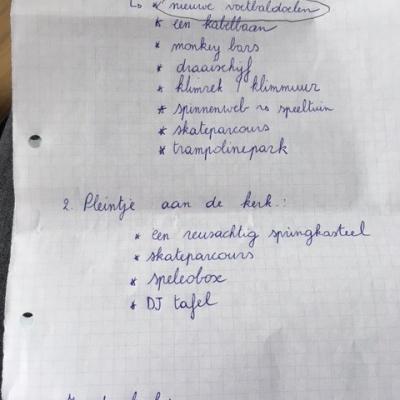 ↳ * nieuwe voetbaldoelen
* een kabelbaan
* monkey bars
* draaischijf
* klimrek / klimmuur
* spinnenweb → speeltuin
* skateparcours
* trampolinepark
2. Pleintje aan de kerk.:
* een reusachtig springkasteel
* skateparcours
* speleobox
* DJ tafel